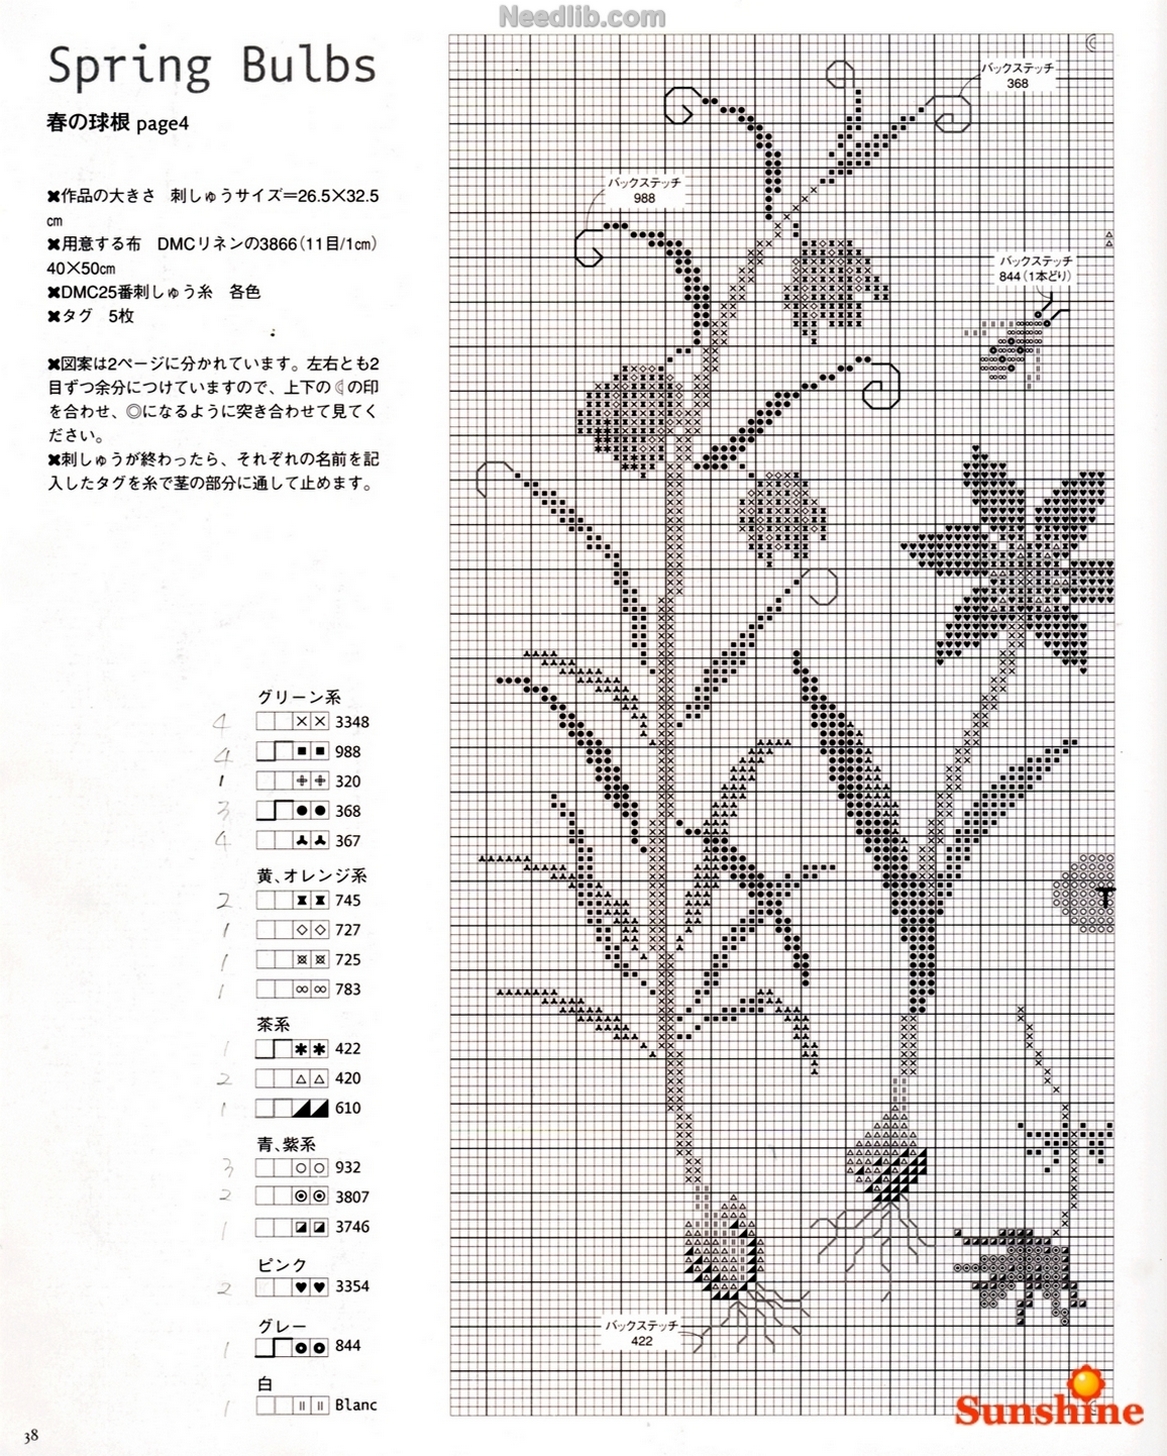 Needlib.com
Spring Bulbs
春の球根 page4
✖作品の大きさ　刺しゅうサイズ=26.5×32.5
cm
✖用意する布　DMCリネンの3866(11目/1cm)
40×50cm
✖DMC25番刺しゅう糸　各色
✖タグ　5枚
✖図案は2ページに分かれています。左右とも2
目ずつ余分につけていますので、上下の☾の印
を合わせ、◎になるように突き合わせて見てく
ださい。
✖刺しゅうが終わったら、それぞれの名前を記
入したタグを糸で茎の部分に通して止めます。
グリーン系
4 3348
4 988
1 320
3 368
4 367
黄、オレンジ系
2 745
1 727
1 725
1 783
茶系
1 422
2 420
1 610
青、紫系
3 932
2 3807
1 3746
ピンク
2 3354
グレー
1 844
白
1 Blanc
38
バックステッチ
368
バックステッチ
988
バックステッチ
844(1本どり)
T
バックステッチ
422
Sunshine